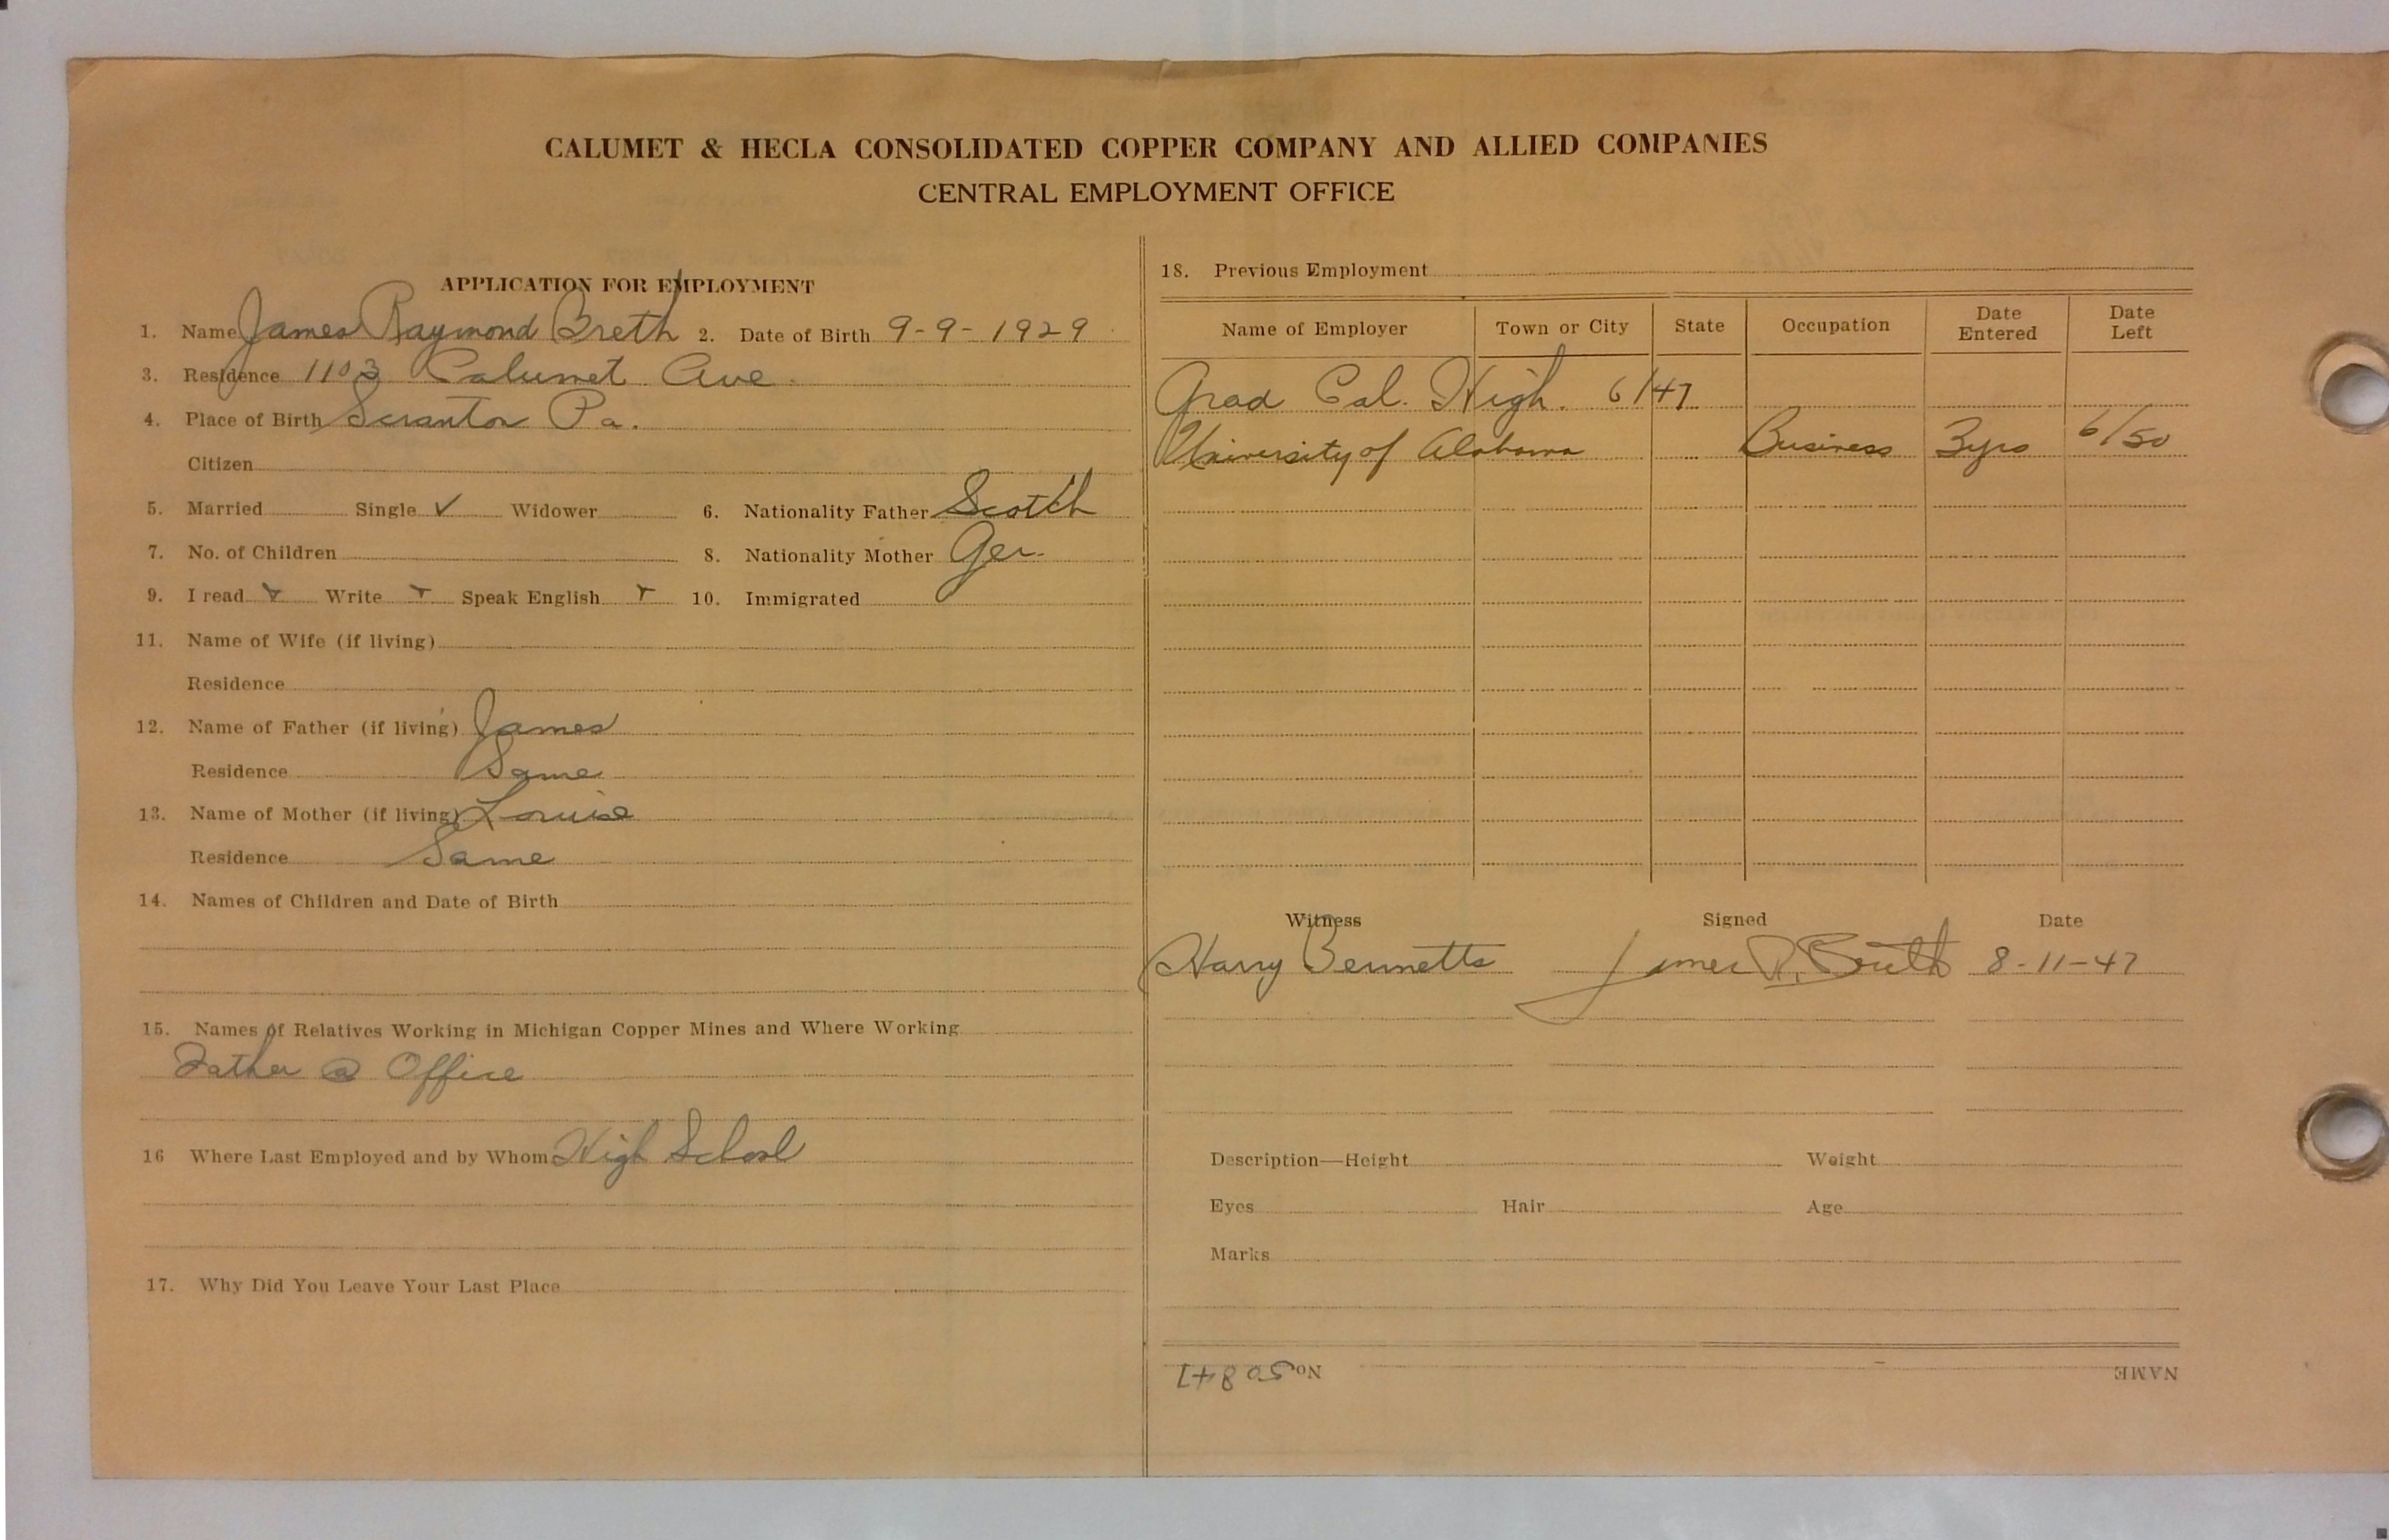 CALUMET & HECLA CONSOLIDATED COPPER COMPANY AND ALLIED COMPANIES
CENTRAL EMPLOYMENT OFFICE
APPLICATION FOR EMPLOYMENT
1. Name James Raymond Breth 2. Date of Birth 9-9-1929
3. Residence 1103 Calumet Ave.
4. Place of Birth Scranton Pa.
Citizen
5. Married Single ✓ Widower 6. Nationality Father Scotch
7. No. of Children 8. Nationality Mother Ger.
9. I read ✓ Write ✓ Speak English ✓ 10. Immigrated
11. Name of Wife (if living)
Residence
12. Name of Father (if living) James
Residence Same
13. Name of Mother (if living) Louise
Residence Same
14. Names of Children and Date of Birth
15. Names of Relatives Working in Michigan Copper Mines and Where Working
Father @ Office
16 Where Last Employed and by Whom High School
17. Why Did You Leave Your Last Place
18. Previous Employment
Name of Employer Town or City State Occupation Date Entered Date Left
Grad Cal. High. 6/47
University of Alabama Business 3yrs 6/50
Witness Signed Date
Harry Bennetts James R. Breth 8-11-47
Description—Height Weight
Eyes Hair Age
Marks
NAME No 50841